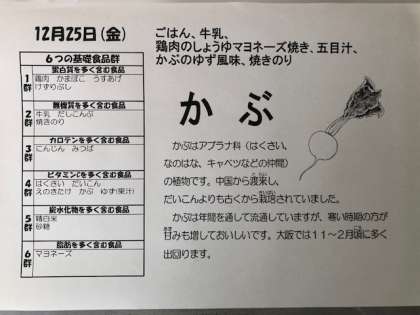 12月25日(金)
ごはん、牛乳、
鶏肉のしょうゆマヨネーズ焼き、五目汁、
かぶのゆず風味、焼きのり
6つの基礎食品群
1群
蛋白質を多く含む食品
鶏肉 かまぼこ うすあげ
けずりぶし
2群
無機質を多く含む食品
牛乳 だしこんぶ
焼きのり
3群
カロテンを多く含む食品
にんじん みつば
4群
ビタミンCを多く含む食品
はくさい だいこん
えのきたけ かぶ ゆず(果汁)
5群
炭水化物を多く含む食品
精白米
砂糖
6群
脂肪を多く含む食品
マヨネーズ
かぶ
かぶはアブラナ科(はくさい、
なのはな、キャベツなどの仲間)
の植物です。中国から渡来し、
だいこんよりも古くから栽培されていました。
かぶは年間を通して流通していますが、寒い時期の方が
甘みも増しておいしいです。大阪では11~2月頃に多く
出回ります。